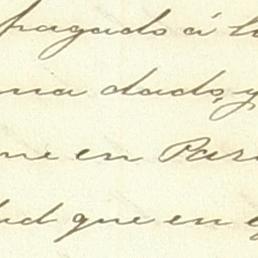 pagado á la
ma dado, y
me en Par
ud que en